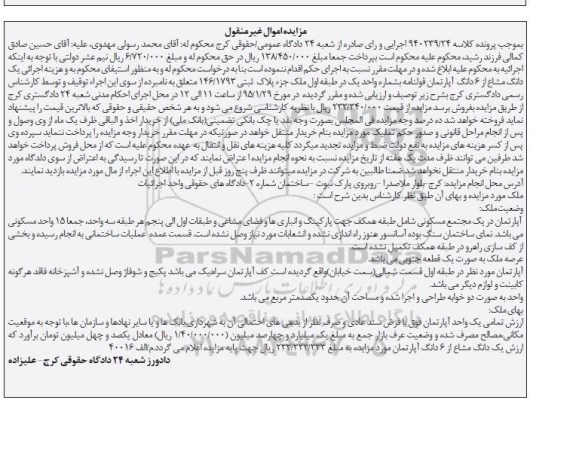 مزایده اموال غیر منقول
بموجب پرونده کلاسه ۹۴۰۲۳۹/۲۴ اجرایی و رای صادره از شعبه ۲۴ دادگاه عمومی/حقوقی کرج محکوم له: آقای محمد رسولی مهدوی، علیه: آقای حسین صادق
کمالی فرزند رشید، محکوم علیه محکوم است بپرداخت جمعا مبلغ ۱۳۸/۴۵۰/۰۰۰ ریال در حق محکوم له و مبلغ ۶/۷۲۰/۰۰۰ ریال نیم عشر دولتی با توجه به اینکه
اجرائیه به محکوم علیه ابلاغ شده و در مهلت مقرر نسبت به اجرای حکم اقدام ننموده است بنا به درخواست محکوم له و به منظور استیفای محکوم به و هزینه اجرائی یک
دانگ مشاع از ۶ دانگ آپارتمان قولنامه بشماره واحد یک در طبقه اول ملک جزء پلاک ثبتی ۱۴۶/۱۷۹۳ متعلق به نامبرده از سوی این اجراء توقیف و توسط کارشناس
رسمی دادگستری کرج بشرح زیر توصیف و ارزیابی شده و مقرر گردید در مورخ ۹۵/۱/۲۹ از ساعت ۱۱ الی ۱۲ در محل اجرای احکام مدنی شعبه ۲۴ دادگستری کرج
از طریق مزایده بفروش برسد. مزایده از قیمت ۲۳۳/۳۴۰/۰۰۰ ریال با نظریه کارشناسی شروع می شود و به هر شخص حقیقی و حقوقی که بالاترین قیمت را پیشنهاد
نماید فروخته خواهد شد ده درصد وجه مزایده فی المجلس بصورت وجه نقد یا چک بانکی تضمینی (بانک ملی) از خریدار اخذ و الباقی ظرف یک ماه از وی وصول و
پس از انجام مراحل قانونی و صدور حکم تملیک مورد مزایده بنام خریدار منتقل خواهد در صورتیکه در مهلت مقرر خریدار وجه مزایده را پرداخت ننماید سپرده وی
پس از کسر هزینه های مزایده به نفع دولت ضبط و مزایده تجدید میگردد کلیه هزینه های نقل و انتقال به عهده محکوم علیه است که از محل فروش پرداخت خواهد
شد طرفین می توانند ظرف مدت یک هفته از تاریخ مزایده نسبت به نحوه انجام مزایده اعتراض نمایند که در این صورت تا رسیدگی به اعتراض از سوی دادگاه مورد
مزایده بنام خریدار منتقل نخواهد شد ضمنا طالبین به شرکت در مزایده میتوانند ظرف پنج روز قبل از مزایده با اطلاع این اجراء از مال مورد مزایده بازدید نمایند.
آدرس محل انجام مزایده: کرج-بلوار ملاصدرا -روبروی پارک نبوت -ساختمان شماره ۲-دادگاه های حقوقی واحد اجرائیات
ملک مورد مزایده و بهای آن طبق نظر کارشناس بدین شرح است:
وضعیت ملک:
آپارتمان در یک مجتمع مسکونی شامل طبقه همکف جهت پارکینگ و انباری ها و فضای مشاعی و طبقات اول الی پنجم هر طبقه سه واحد، جمعا ۱۵ واحد مسکونی
می باشد. نمای ساختمان سنگ بوده آسانسور هنوز راه اندازی نشده و انشعابات مورد نیاز وصل نشده است. قسمت عمده عملیات ساختمانی به انجام رسیده و بخشی
از کف سازی راهرو در طبقه همکف تکمیل نشده است.
عرصه ملک به صورت یک قطعه جنوبی می باشد.
آپارتمان مورد نظر در طبقه اول قسمت شمالی(سمت خیابان)واقع گردیده است کف آپارتمان سرامیک می باشد پکیج و شوفاژ وصل نشده و آشپزخانه فاقد هرگونه
کابینت و لوازم دیگر می باشد.
واحد به صورت دو خوابه طراحی و اجرا شده و مساحت آن حدود یکصد متر مربع می باشد.
بهای ملک:
ارزش تمامی یک واحد آپارتمان فوق با فرض سند عادی و صرف نظر از بدهی های احتمالی آن به شهرداری، بانک ها و یا سایر نهادها و سازمان ها، با توجه به موقعیت
مکانی، مصالح مصرف شده و وضعیت عرف بازار جمع به مبلغ یک میلیارد و چهارصد میلیون (۱/۴۰۰/۰۰۰/۰۰۰ ریال) معادل یکصد و چهل میلیون تومان برآورد که
ارزش یک دانگ مشاع از ۶ دانگ آپارتمان مورد مزایده به مبلغ ۲۳۳/۳۳۳/۳۳۳ ریال جهت پایه مزایده اعلام می گردد.م/الف ۴۰۰۱۶
دادورز شعبه ۲۴ دادگاه حقوقی کرج- علیزاده
ParsNamadData